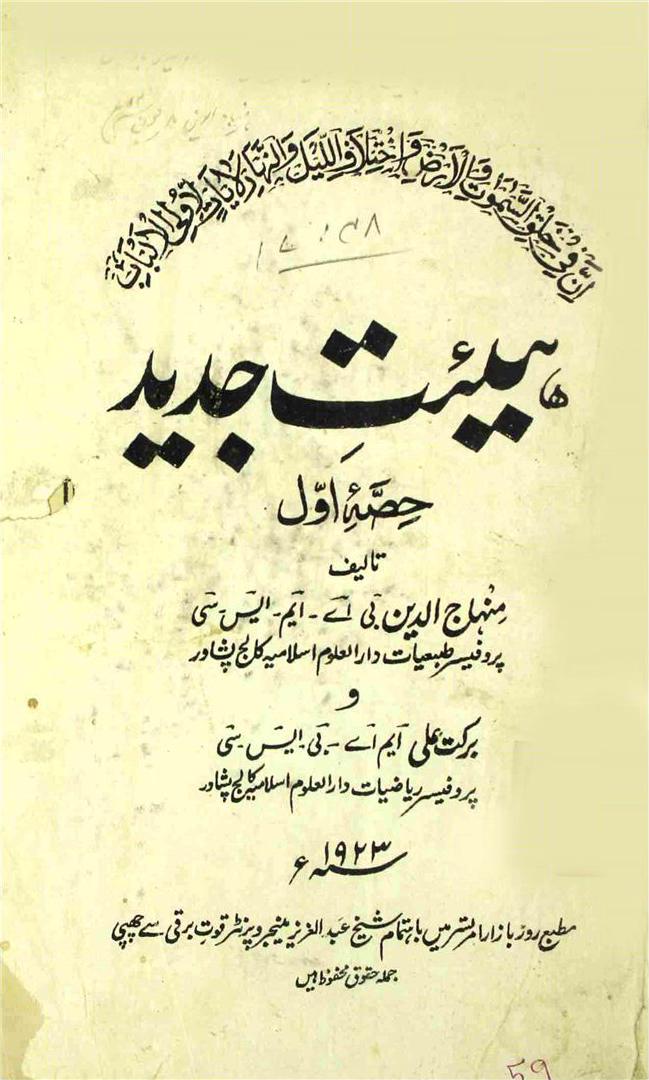 إِنَّ فِي خَلْقِ السَّمٰوٰتِ وَالْأَرْضِ وَاخْتِلَافِ اللَّيْلِ وَالنَّهَارِ لَاٰيَاتٍ لِّأُولِي الْأَلْبَابِ
ہیئتِ جدید
حِصّۂ اوّل
تالیف
منہاج الدین بی اے - ایم - ایس - سی
پروفیسر طبعیات دارالعلوم اسلامیہ کالج پشاور
و
برکت علی ایم اے - بی - ایس - سی
پروفیسر ریاضیات دارالعلوم اسلامیہ کالج پشاور
سنہ ۱۹۲۳ء
مطبع روز بازار امرتسر میں باہتمام شیخ عبدالعزیز مینیجر و پرنٹر قوت برقی سے چھپی
جملہ حقوق محفوظ ہیں
59